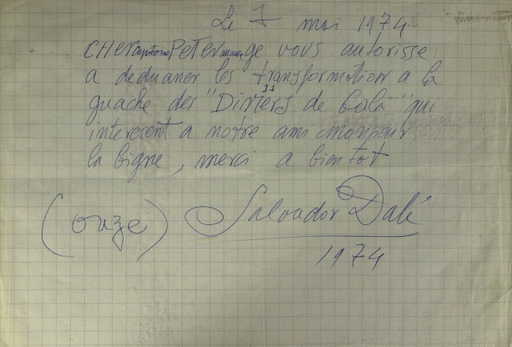 Le 7 mai 1974
CHER capitaine PETER moore ge vous autorisse
a deduaner les transformation a la
guache des "Diners de Gala" qui
11
interesent a notre ami monsieur
la bigne, merci a bientot
(onze) Salvador Dalí
1974